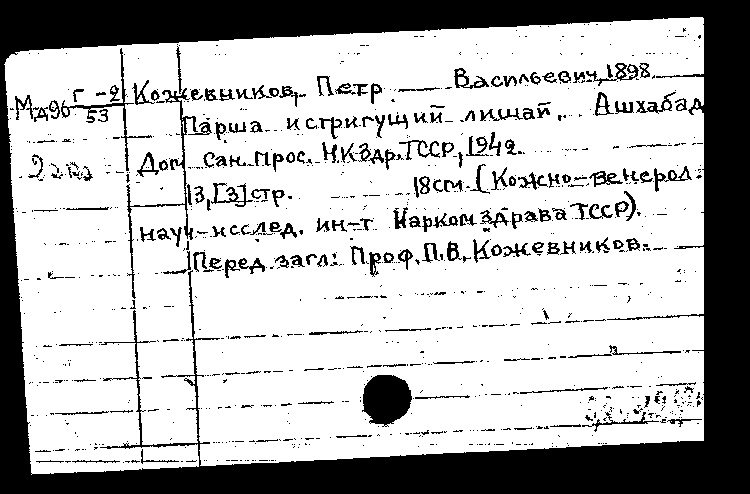 М 496 Г-2/53 Кожевников, Петр Васильевич, 1898
Парша и стригущий лишай. Ашхабад
2 экз Дом сан. прос. НКЗдр. ТССР, 1942.
13, [3] стр. 18 см. (Кожно-венерол.
науч-исслед. ин-т Наркомздрава ТССР).
Перед загл: Проф. П.В. Кожевников.